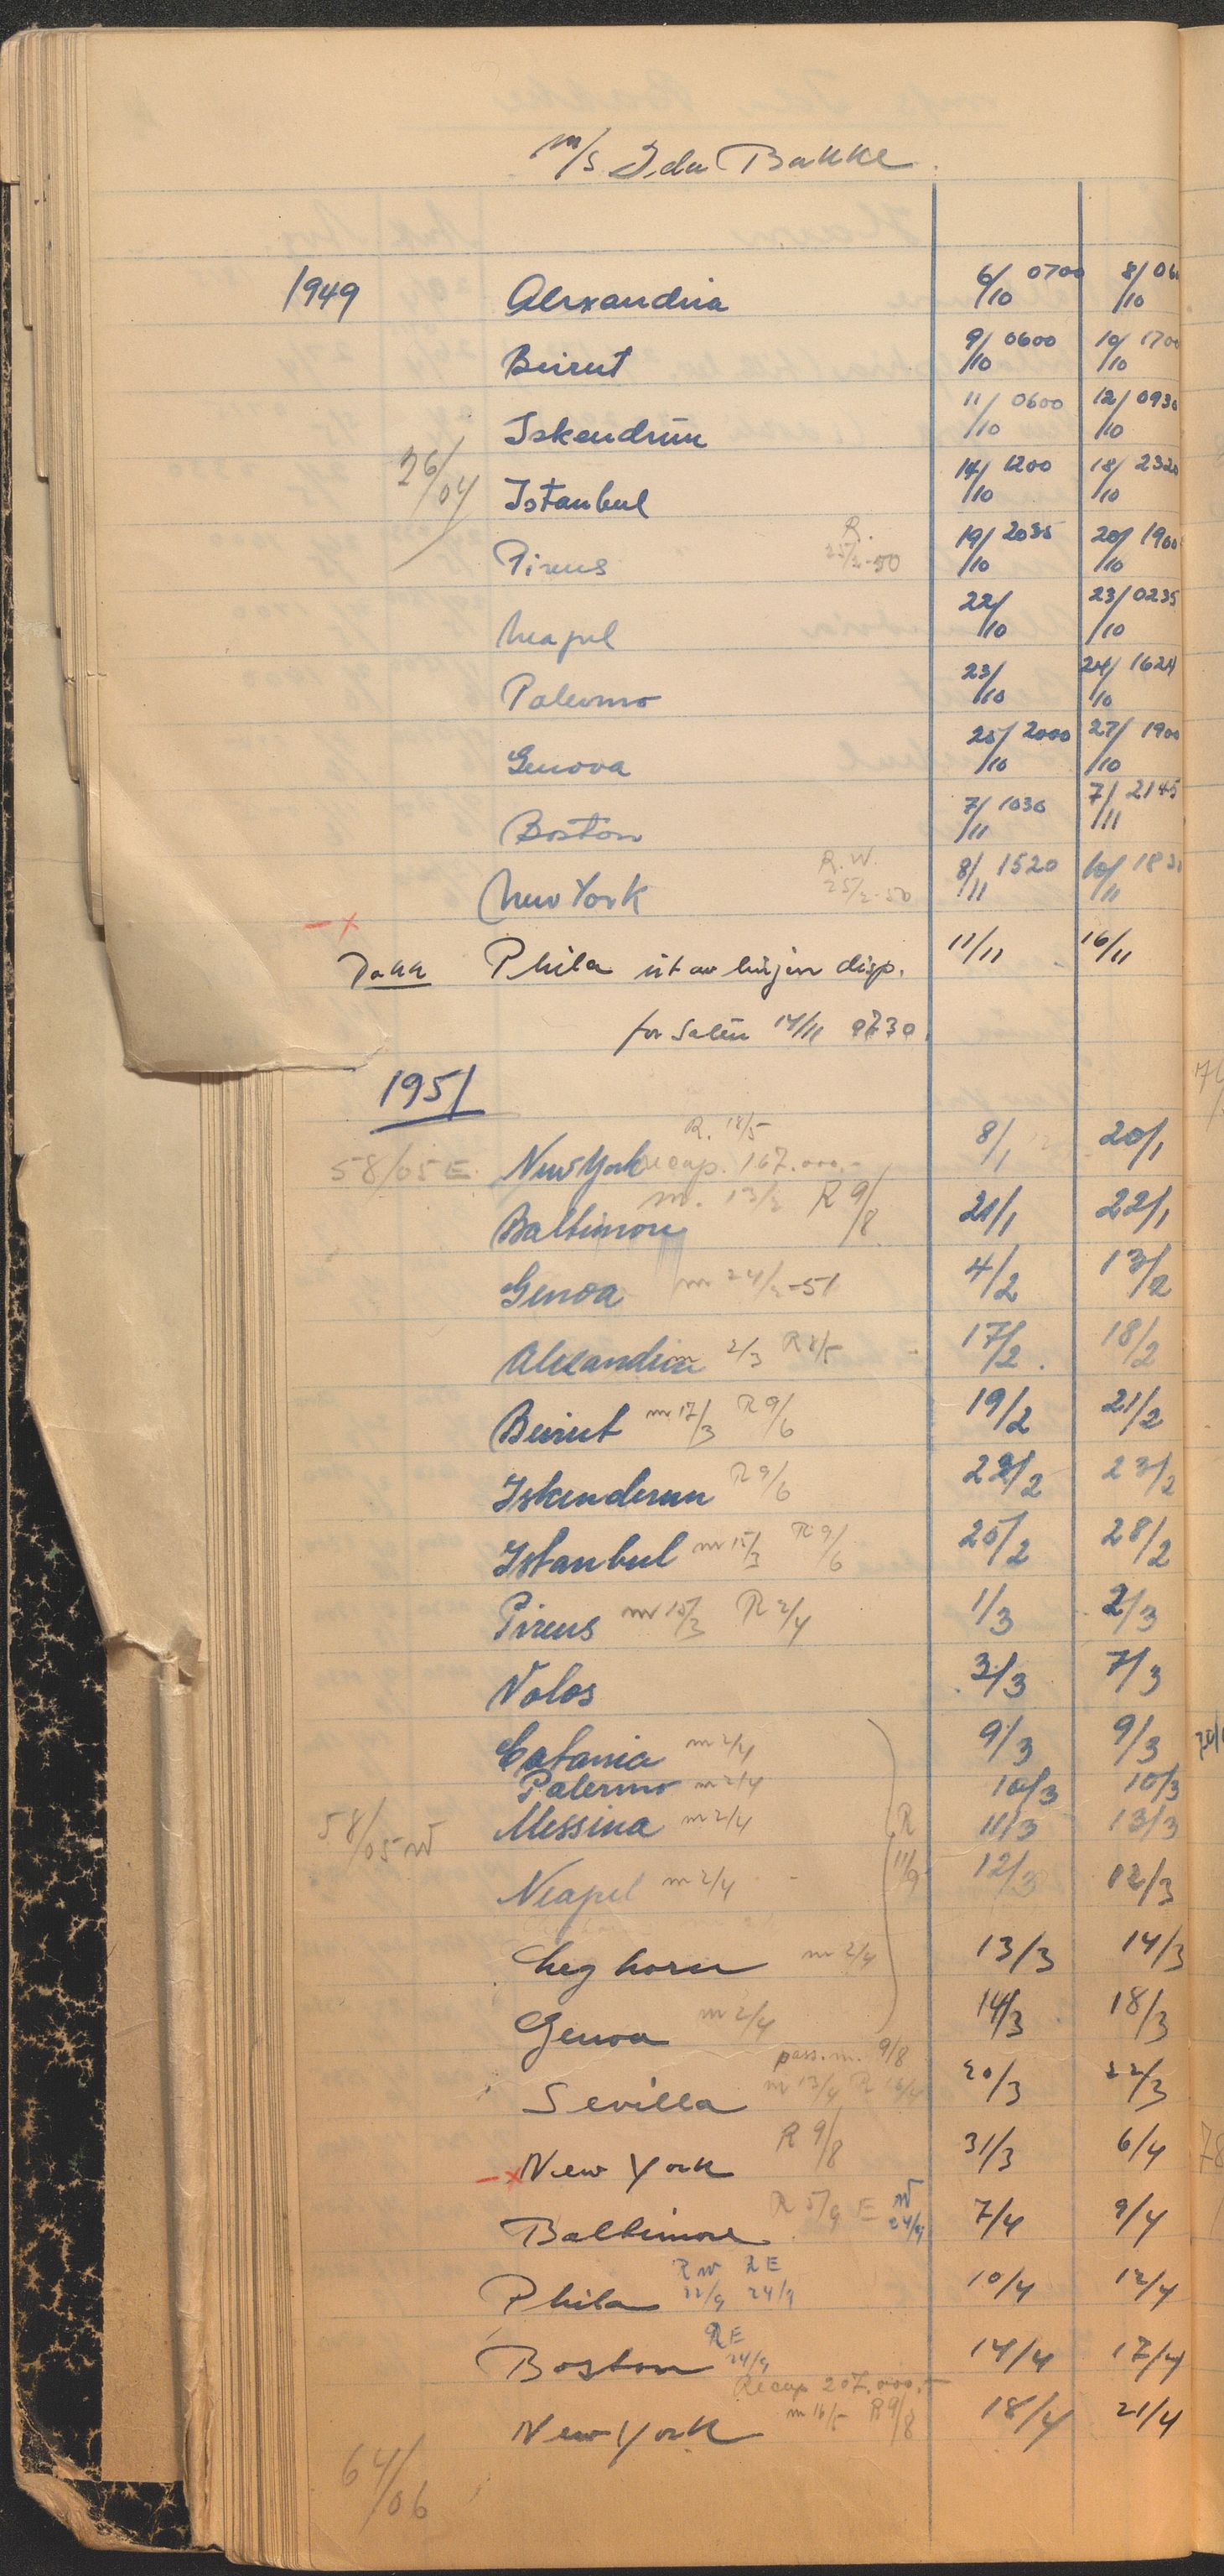 m/s Ida Bakke
1949 Alexandria 6/10 0700 8/10
Beirut 9/10 0600 10/10 1700
Iskendrün 11/10 0600 12/10 0930
26/04 Istanbul 14/10 1200 18/10 2320
Pireus R. 25/2-50 19/10 2035 20/10 1900
Neapel 22/10 23/10 0235
Palermo 23/10 24/10 1624
Genova 25/10 2000 27/10 1900
Boston 7/11 1030 7/11 2145
New York R.W. 25/2-50 8/11 1520 10/11
- x
Phila ut av linjen disp. 11/11 16/11
for Salén 14/11
1951
R. 18/5
58/05 E. New York recap. 167.000.- 8/1 20/1
Baltimore m. 13/2 R 9/8 21/1 22/1
Genoa m 24/2-51 4/2 13/2
Alexandria m 2/3 R 8/5 17/2 18/2
Beirut m 17/3 R 9/6 19/2 21/2
Iskenderun R 9/6 22/2 23/2
Istanbul m 15/3 R 9/6 25/2 28/2
Pireus m 15/3 R 2/4 1/3 2/3
Volos 3/3 7/3
Catania m 2/4 9/3 9/3
Palermo m 2/4 10/3 10/3
58/05 W Messina m 2/4 R 11/9 11/3 13/3
Neapel m 2/4 12/3 12/3
Leghorn m 2/4 13/3 14/3
Genoa m 2/4 14/3 18/3
pass. m. 9/8
Sevilla m 13/4 R 16/4 20/3 22/3
- x New York R 9/8 31/3 6/4
Baltimore R 5/9 E W 24/9 7/4 9/4
Phila R W 22/9 R E 24/9 10/4 12/4
Boston R E 24/9 14/4 17/4
Recap 207.000.-
New York m 16/5 R 9/8 18/4 21/4
64/06